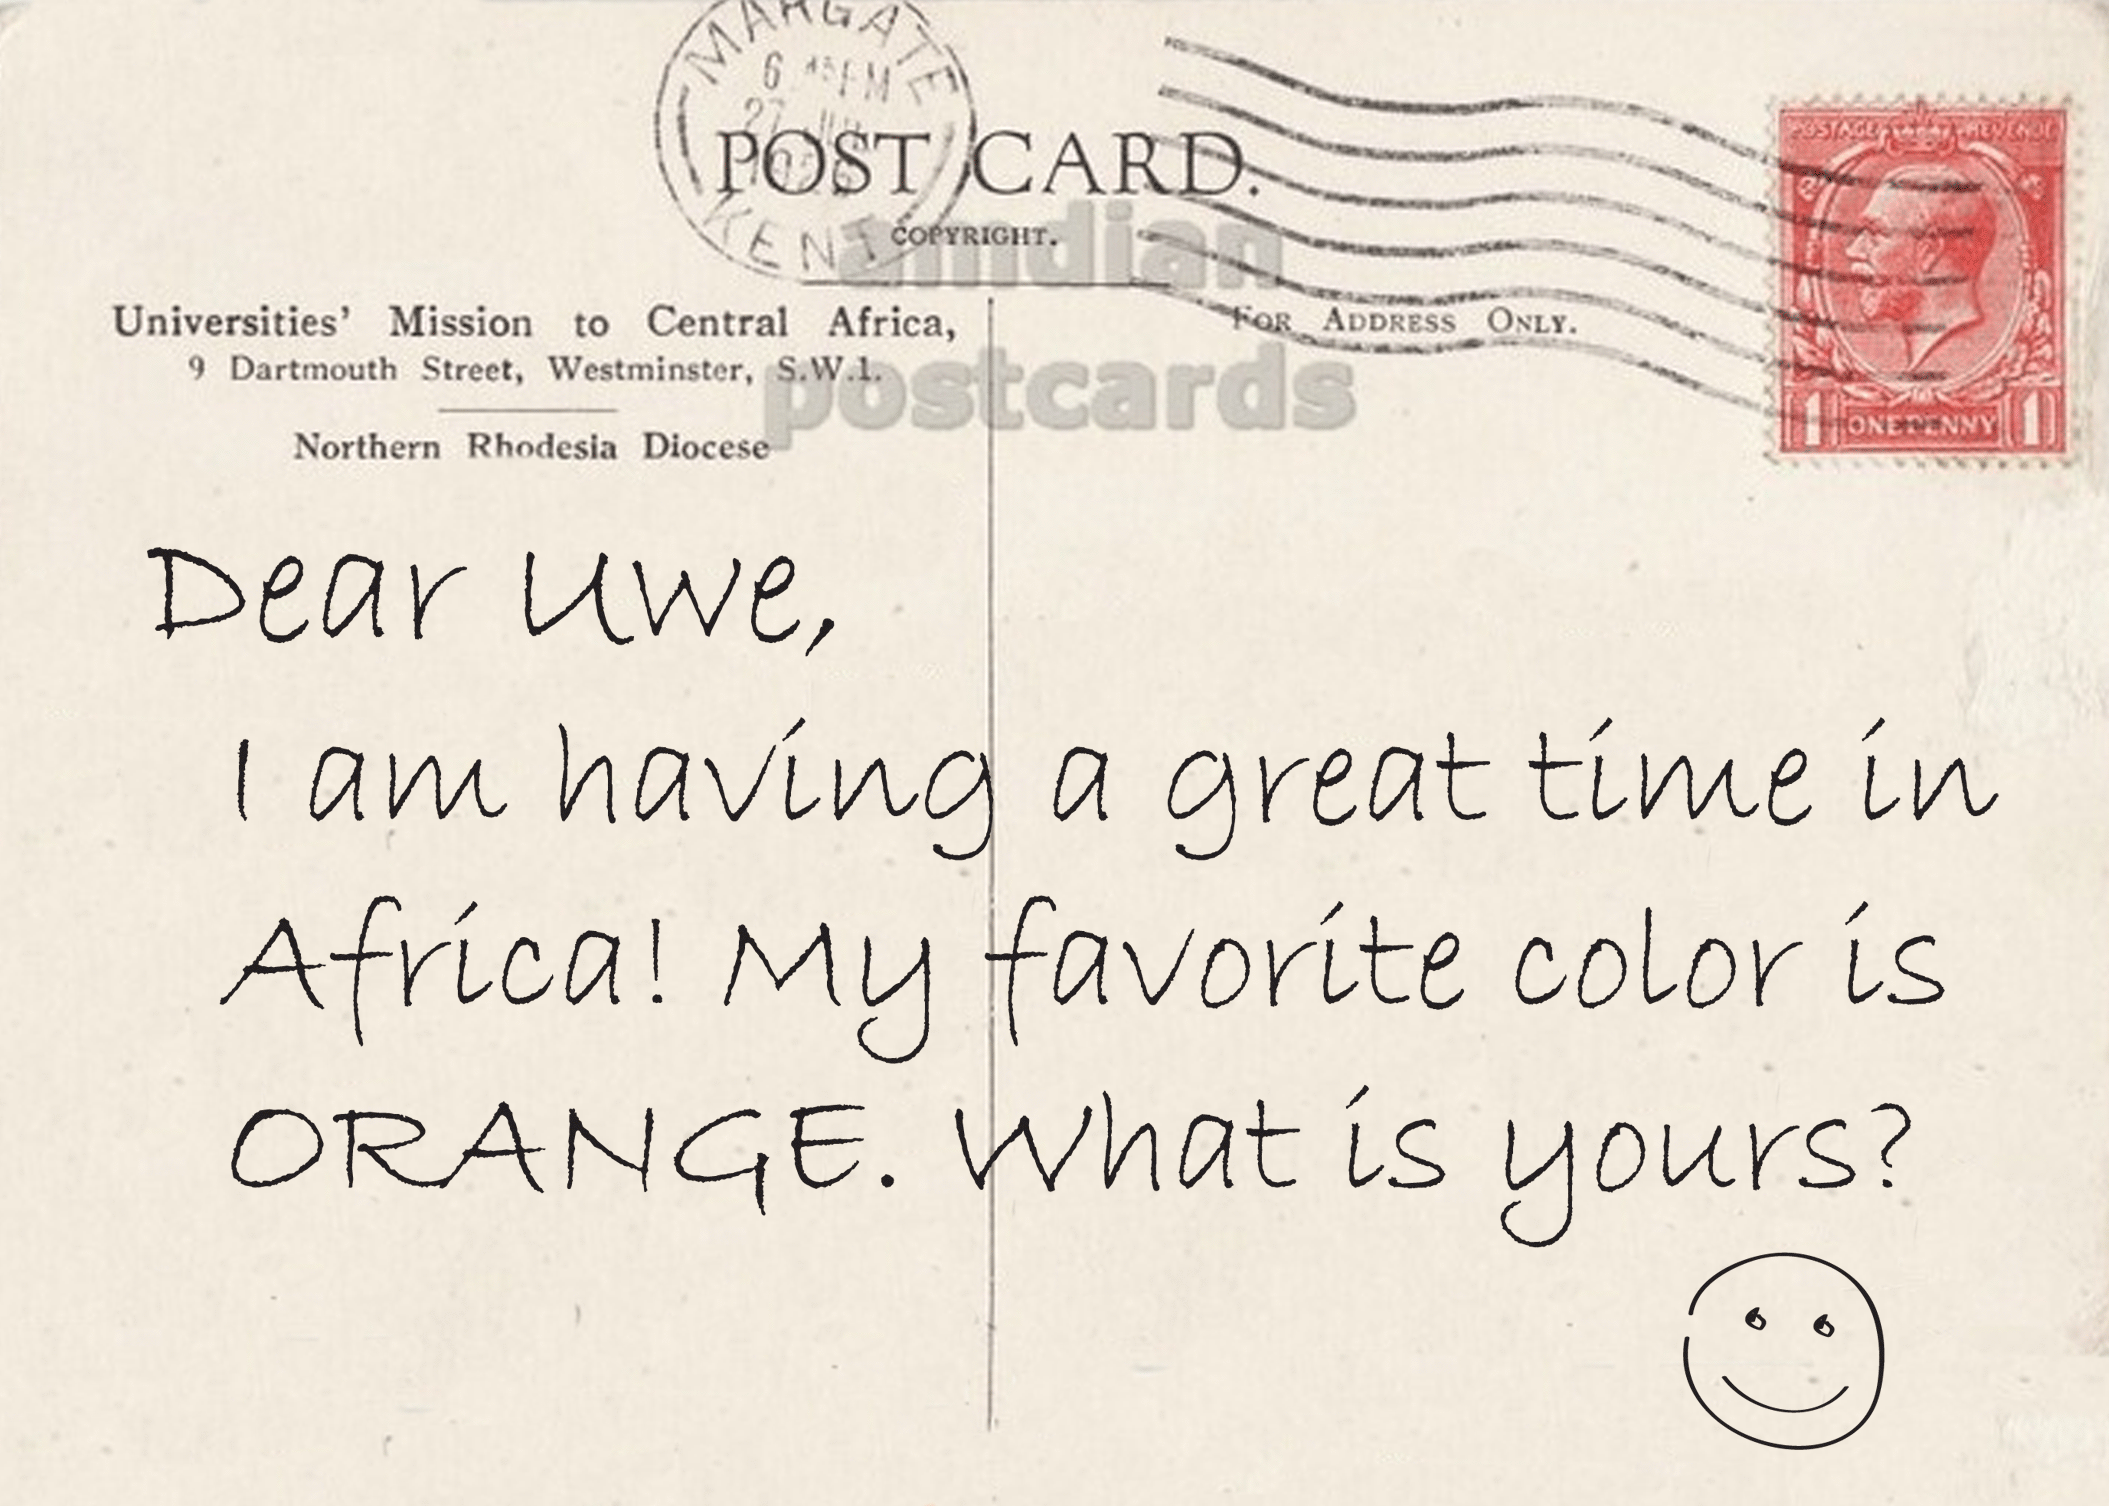 MARGATE
6 45 PM
27
KENT
POST CARD.
COPYRIGHT.
amdian
postcards
Universities' Mission to Central Africa,
9 Dartmouth Street, Westminster, S.W.1.
Northern Rhodesia Diocese
FOR ADDRESS ONLY.
POSTAGE REVENUE
1 ONE PENNY 1
Dear Uwe,
I am having a great time in
Africa! My favorite color is
ORANGE. What is yours?